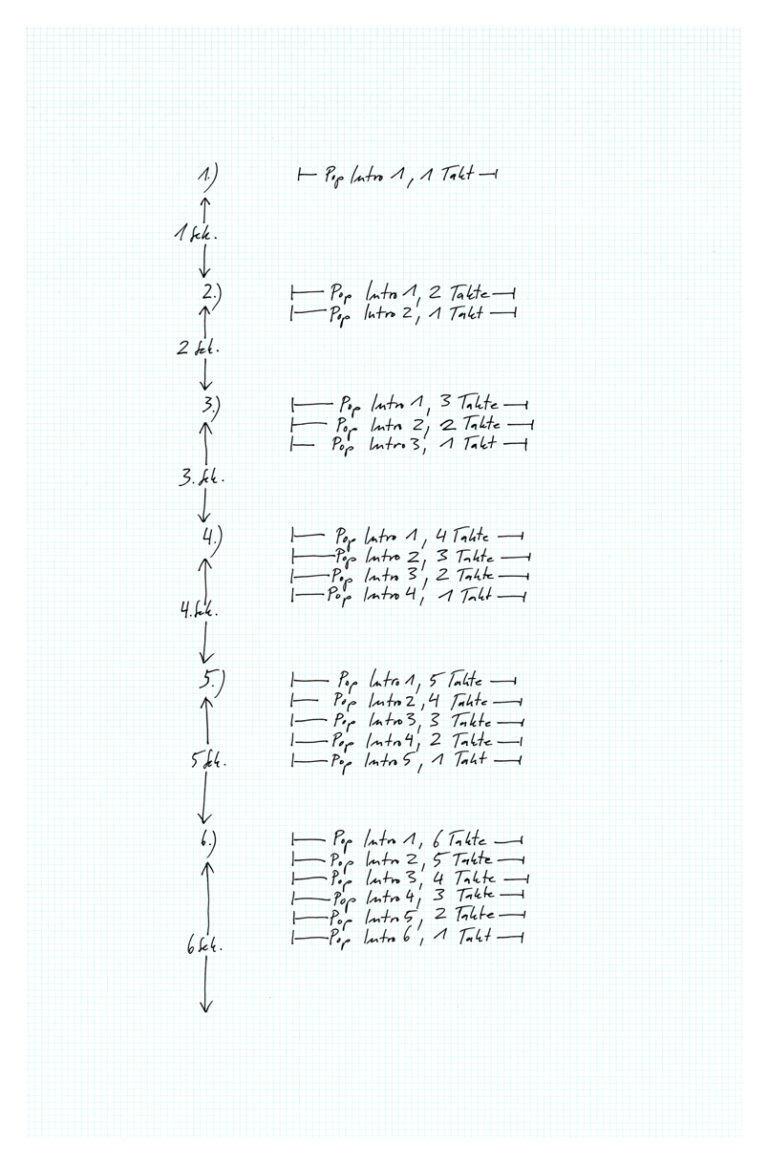 1.) Pop Intro 1, 1 Takt
1 Sek.
2.) Pop Intro 1, 2 Takte
Pop Intro 2, 1 Takt
2 Sek.
3.) Pop Intro 1, 3 Takte
Pop Intro 2, 2 Takte
Pop Intro 3, 1 Takt
3. Sek.
4.) Pop Intro 1, 4 Takte
Pop Intro 2, 3 Takte
Pop Intro 3, 2 Takte
Pop Intro 4, 1 Takt
4. Sek.
5.) Pop Intro 1, 5 Takte
Pop Intro 2, 4 Takte
Pop Intro 3, 3 Takte
Pop Intro 4, 2 Takte
Pop Intro 5, 1 Takt
5 Sek.
6.) Pop Intro 1, 6 Takte
Pop Intro 2, 5 Takte
Pop Intro 3, 4 Takte
Pop Intro 4, 3 Takte
Pop Intro 5, 2 Takte
Pop Intro 6, 1 Takt
6 Sek.